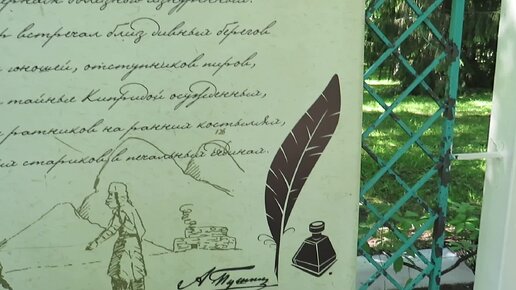 встречал близ дивных берегов
юношей, отступников пиров,
тайные Кипридой осужденных,
ратников на ранних костылях,
стариков в печальных сединах.
А Пушкин